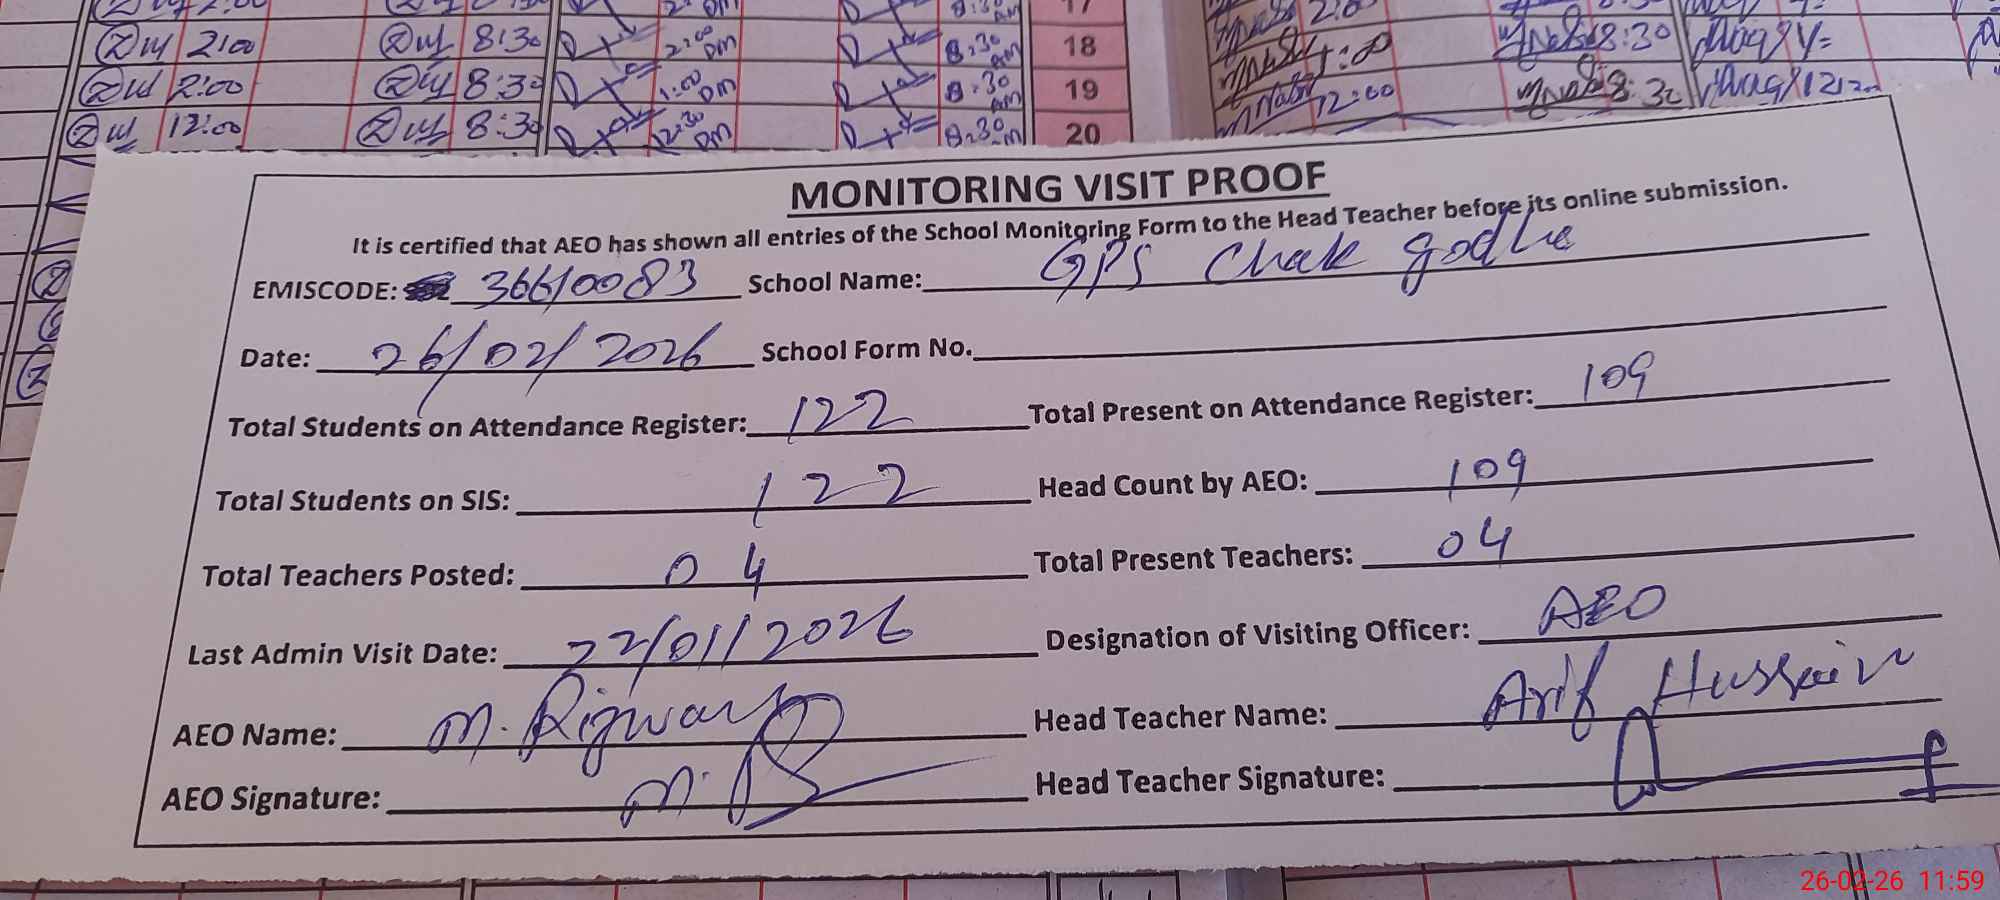 2:00 8:30 2:00 PM 8:30 AM 18 4:00 8:30
2:00 8:30 1:00 PM 8:30 AM 19 12:00 8:30
12:00 8:30 12:30 PM 8:30 20
MONITORING VISIT PROOF
It is certified that AEO has shown all entries of the School Monitoring Form to the Head Teacher before its online submission.
EMISCODE: 36610083 School Name: GPS Chak godhe
Date: 26/02/2026 School Form No.
Total Students on Attendance Register: 122 Total Present on Attendance Register: 109
Total Students on SIS: 122 Head Count by AEO: 109
Total Teachers Posted: 04 Total Present Teachers: 04
Last Admin Visit Date: 22/01/2026 Designation of Visiting Officer: AEO
AEO Name: M. Rizwan Head Teacher Name: Arif Hussain
AEO Signature: Head Teacher Signature:
26-02-26 11:59